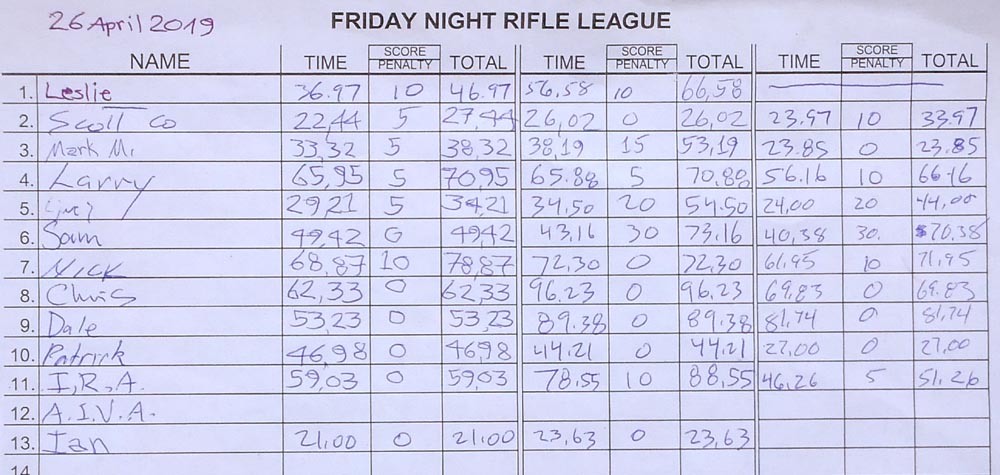 26 April 2019
FRIDAY NIGHT RIFLE LEAGUE
NAME TIME SCORE PENALTY TOTAL TIME SCORE PENALTY TOTAL TIME SCORE PENALTY TOTAL
1. Leslie 36.97 10 46.97 56,58 10 66,58
2. Scott Co 22,44 5 27,44 26,02 0 26,02 23.97 10 33,97
3. Mark M. 33,32 5 38,32 38,19 15 53,19 23.85 0 23.85
4. Larry 65,95 5 70,95 65.88 5 70,88 56.16 10 66.16
5. 29,21 5 34,21 34,50 20 54.50 24,00 20 44,00
6. Sam 49,42 0 49,42 43,16 30 73.16 40,38 30. 70,38
7. Nick 68,87 10 78,87 72,30 0 72,30 61,95 10 71,95
8. Chris 62,33 0 62,33 96.23 0 96.23 69,83 0 69.83
9. Dale 53,23 0 53,23 89.38 0 89.38 81,74 0 81,74
10. Patrick 46,98 0 46,98 44.21 0 44.21 27,00 0 27,00
11. I.R.A. 59,03 0 59,03 78.55 10 88,55 46,26 5 51,26
12. A.I.V.A.
13. Ian 21,00 0 21,00 23,63 0 23,63
14